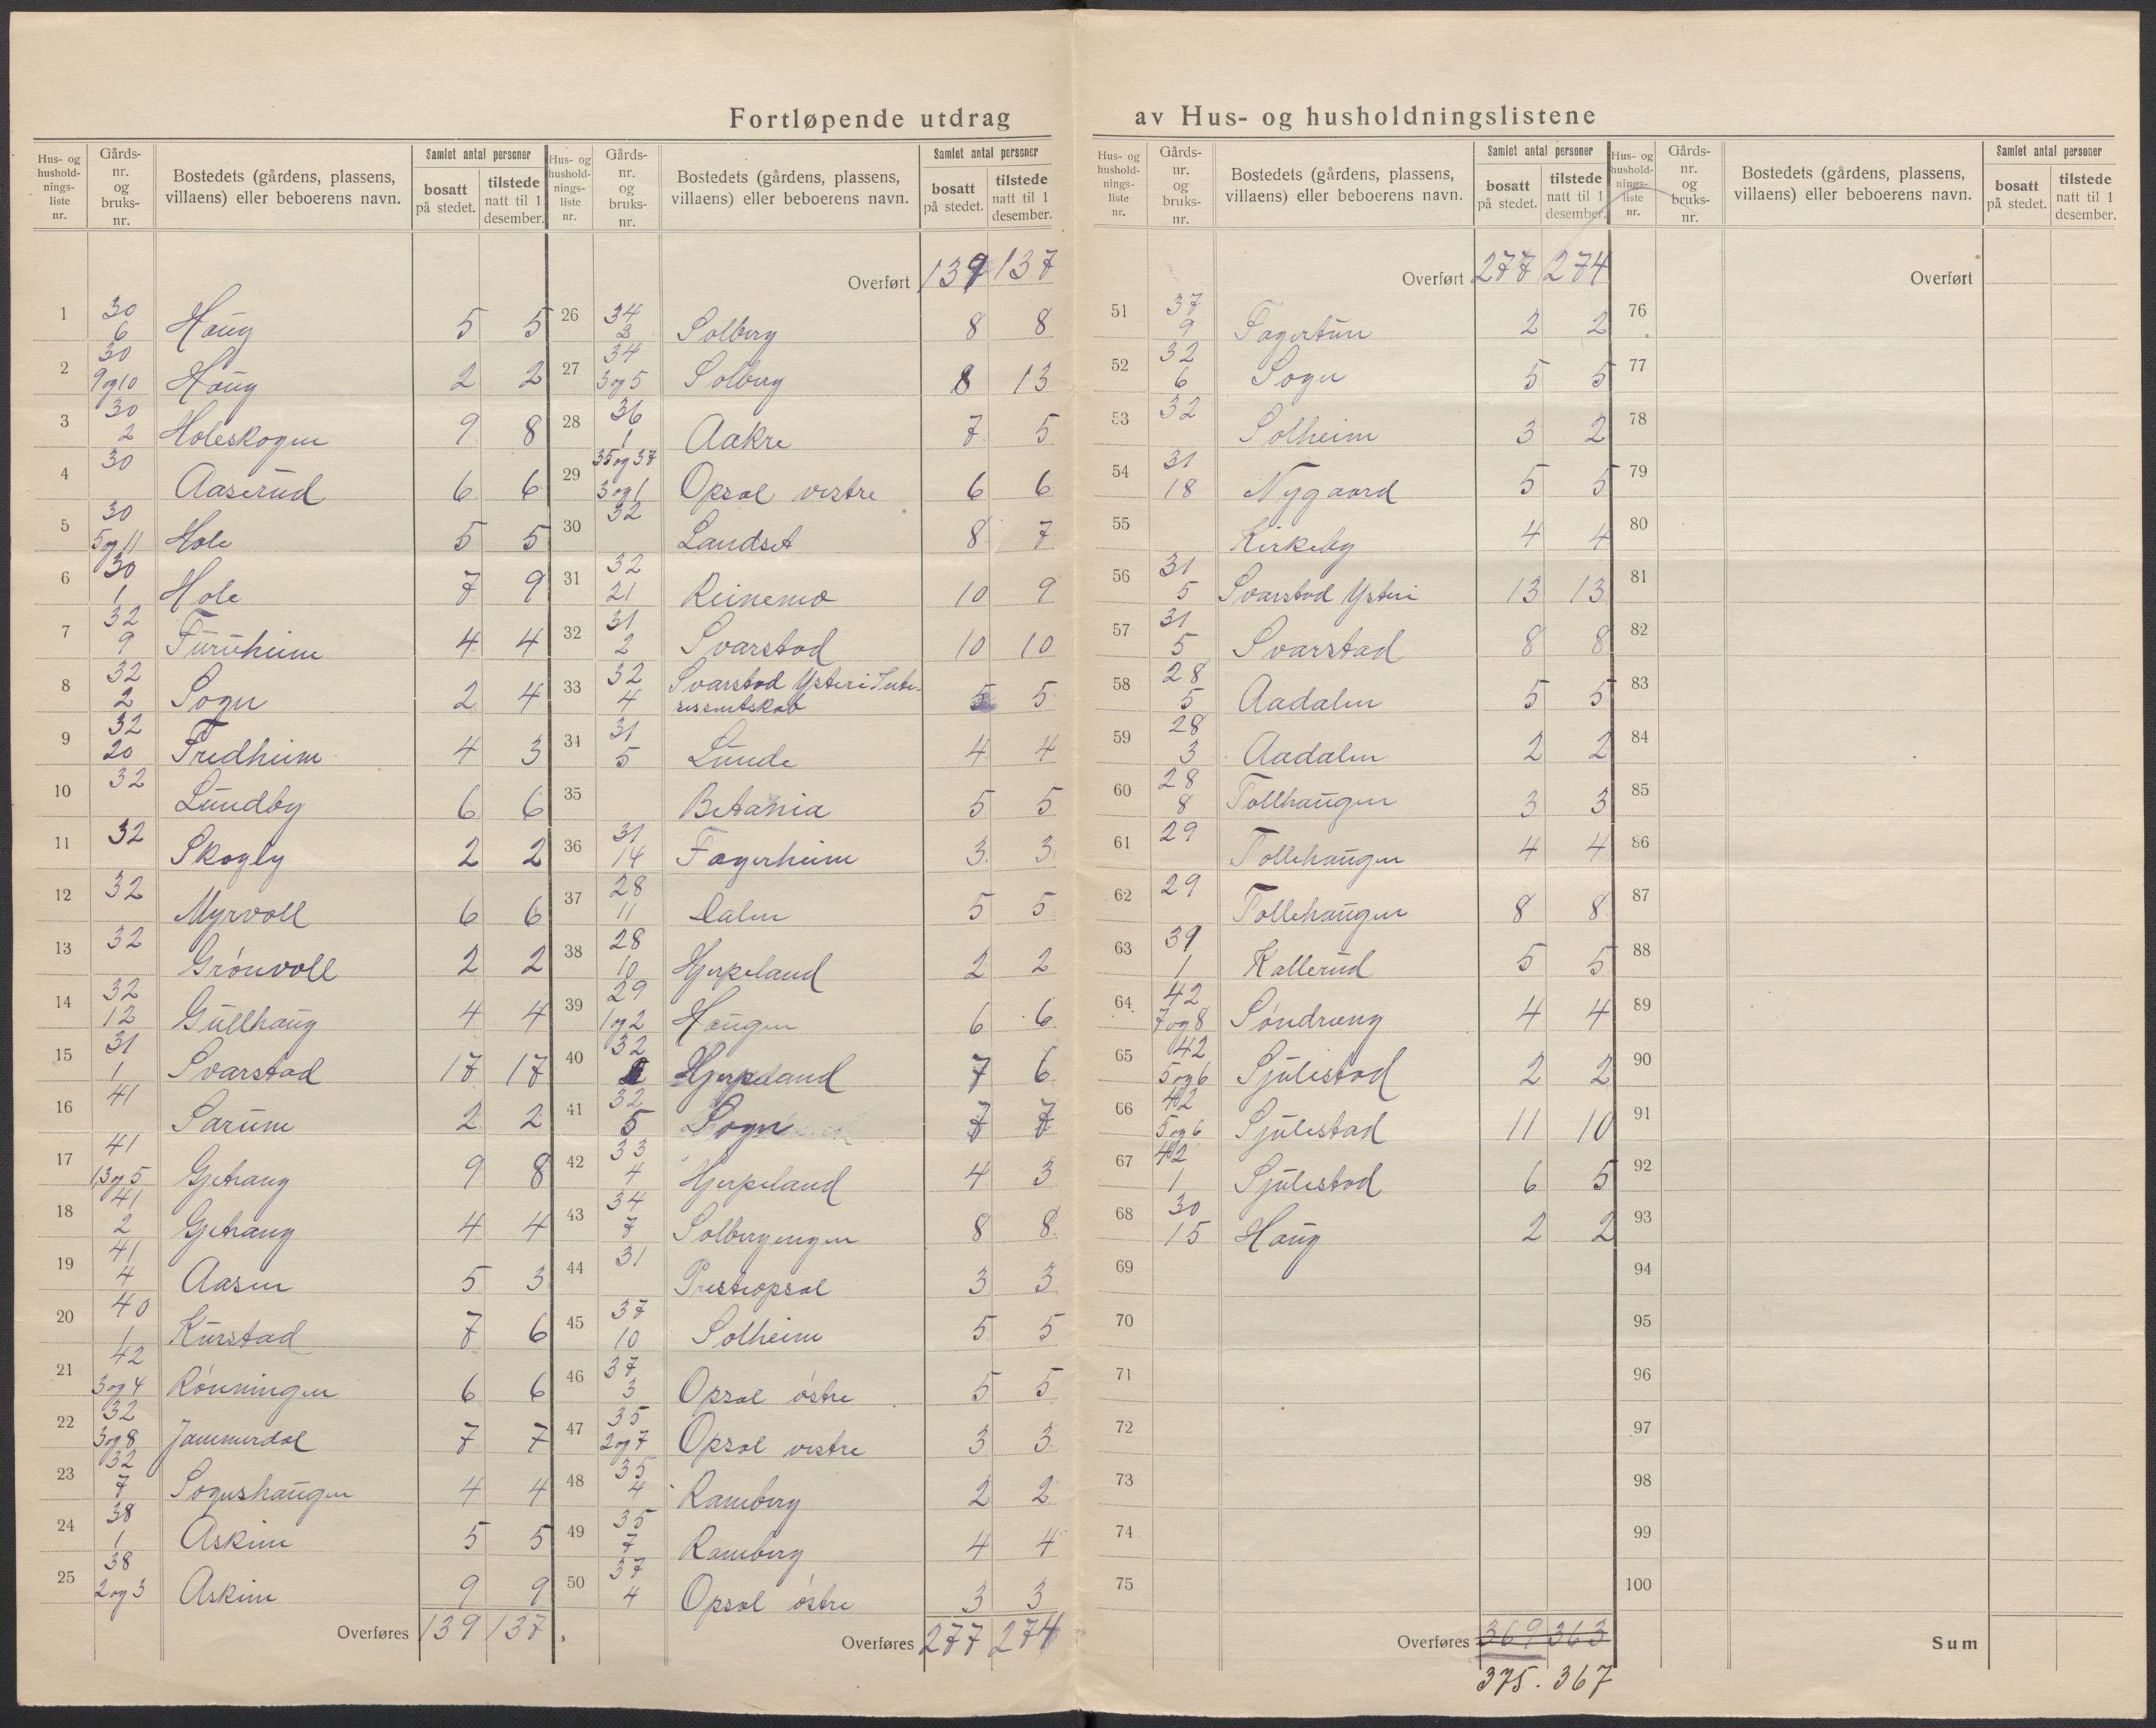 Fortløpende utdrag av Hus- og husholdningslistene
Hus- og husholdningsliste nr. Gårds-nr. og bruks-nr. Bostedets (gårdens, plassens, villaens) eller beboerens navn. Samlet antal personer bosatt på stedet. tilstede natt til 1 desember.
1 30 6 Haug 5 5
2 30 9 og 10 Haug 2 2
3 30 2 Holeskogen 9 8
4 30 Aaserud 6 6
5 30 5 og 11 Hole 5 5
6 30 1 Hole 7 9
7 32 9 Furuheim 4 4
8 32 2 Sogn 2 4
9 32 20 Fredheim 4 3
10 32 Lundby 6 6
11 32 Skogly 2 2
12 32 Myrvoll 6 6
13 32 Grønvoll 2 2
14 32 12 Gullhaug 4 4
15 31 1 Svarstad 17 17
16 41 Sarum 2 2
17 41 1,3 og 5 Gjetrang 9 8
18 41 2 Gjetrang 4 4
19 41 4 Aasen 5 3
20 40 1 Kurstad 7 6
21 42 3 og 4 Rønningen 6 6
22 32 3 og 8 Jammerdal 7 7
23 32 7 Sognshaugen 4 4
24 38 1 Askim 5 5
25 38 2 og 3 Askim 9 9
Overføres 139 137
Hus- og husholdningsliste nr. Gårds-nr. og bruks-nr. Bostedets (gårdens, plassens, villaens) eller beboerens navn. Samlet antal personer bosatt på stedet. tilstede natt til 1 desember.
Overført 139 137
26 34 2 Solberg 8 8
27 34 3 og 5 Solberg 8 13
28 36 1 Aakre 7 5
29 35 og 37 3 og 1 Opsal vestre 6 6
30 32 Landset 8 7
31 32 21 Reinemo 10 9
32 31 2 Svarstad 10 10
33 32 4 Svarstad Ysteri Inte-
ressentskab 5 5
34 31 5 Lunde 4 4
35 Betania 5 5
36 31 14 Fagerheim 3 3
37 28 11 Dalen 5 5
38 28 10 Hjerpeland 2 2
39 29 1 og 2 Haugen 6 6
40 32 Hjerpeland 7 6
41 32 5 Sogn 7 7
42 33 4 Hjerpeland 4 3
43 34 7 Solbergengen 8 8
44 31 Presteopsal 3 3
45 37 10 Solheim 5 5
46 37 3 Opsal østre 5 5
47 35 2 og 7 Opsal vestre 3 3
48 35 4 Ramberg 2 2
49 35 7 Ramberg 4 4
50 37 4 Opsal østre 3 3
Overføres 277 274
Hus- og husholdningsliste nr. Gårds-nr. og bruks-nr. Bostedets (gårdens, plassens, villaens) eller beboerens navn. Samlet antal personer bosatt på stedet. tilstede natt til 1 desember.
Overført 277 274
51 37 9 Fagertun 2 2
52 32 6 Sogn 5 5
53 32 Solheim 3 2
54 31 18 Nygaard 5 5
55 Kirkeby 4 4
56 31 5 Svarstad Ysteri 13 13
57 31 5 Svarstad 8 8
58 28 5 Aadalen 5 5
59 28 3 Aadalen 2 2
60 28 8 Tollhaugen 3 3
61 29 Tollehaugen 4 4
62 29 Tollehaugen 8 8
63 39 1 Kallerud 5 5
64 42 7 og 8 Søndrang 4 4
65 42 5 og 6 Sjulestad 2 2
66 42 5 og 6 Sjulestad 11 10
67 42 1 Sjulestad 6 5
68 30 15 Haug 2 2
69
70
71
72
73
74
75
Overføres 369 363
375. 367
Hus- og husholdningsliste nr. Gårds-nr. og bruks-nr. Bostedets (gårdens, plassens, villaens) eller beboerens navn. Samlet antal personer bosatt på stedet. tilstede natt til 1 desember.
Overført
76
77
78
79
80
81
82
83
84
85
86
87
88
89
90
91
92
93
94
95
96
97
98
99
100
Sum